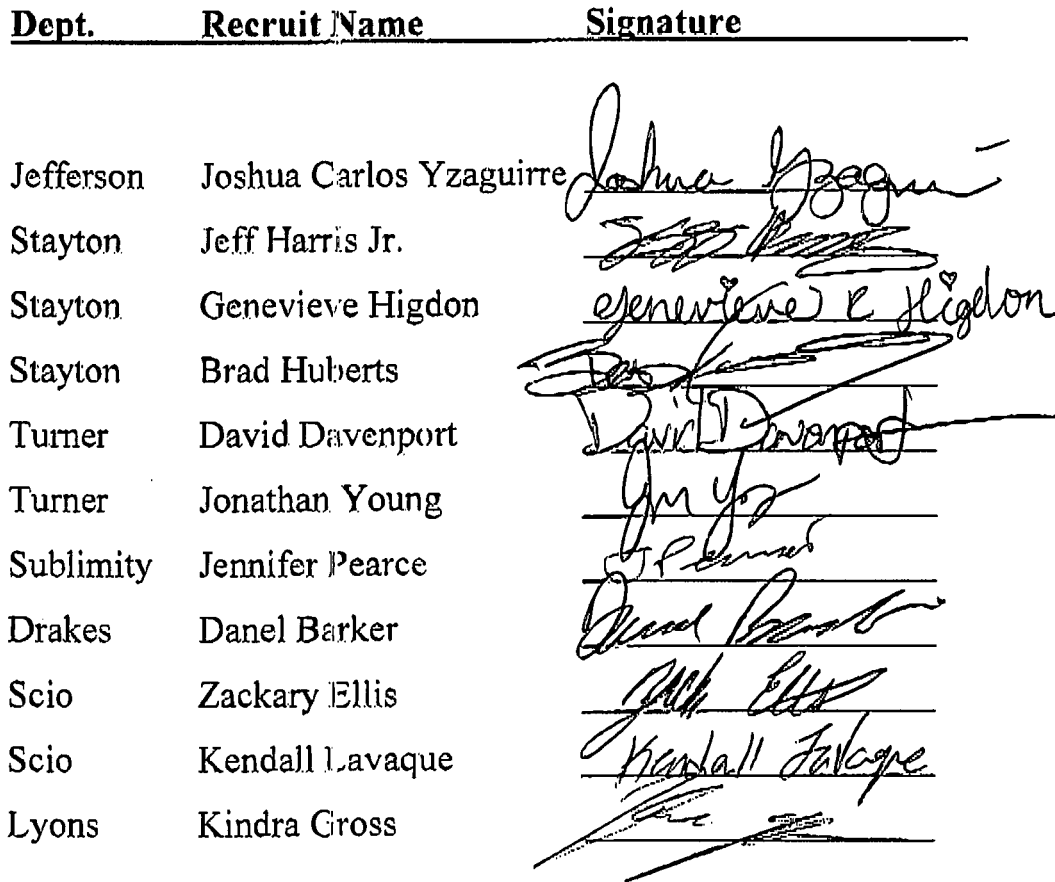 Dept. Recruit Name Signature
Jefferson Joshua Carlos Yzaguirre Joshua Yzaguirre
Stayton Jeff Harris Jr.
Stayton Genevieve Higdon Genevieve R Higdon
Stayton Brad Huberts
Turner David Davenport David Davenport
Turner Jonathan Young
Sublimity Jennifer Pearce J Pearce
Drakes Danel Barker
Scio Zackary Ellis Zack Ellis
Scio Kendall Lavaque Kendall Lavaque
Lyons Kindra Gross